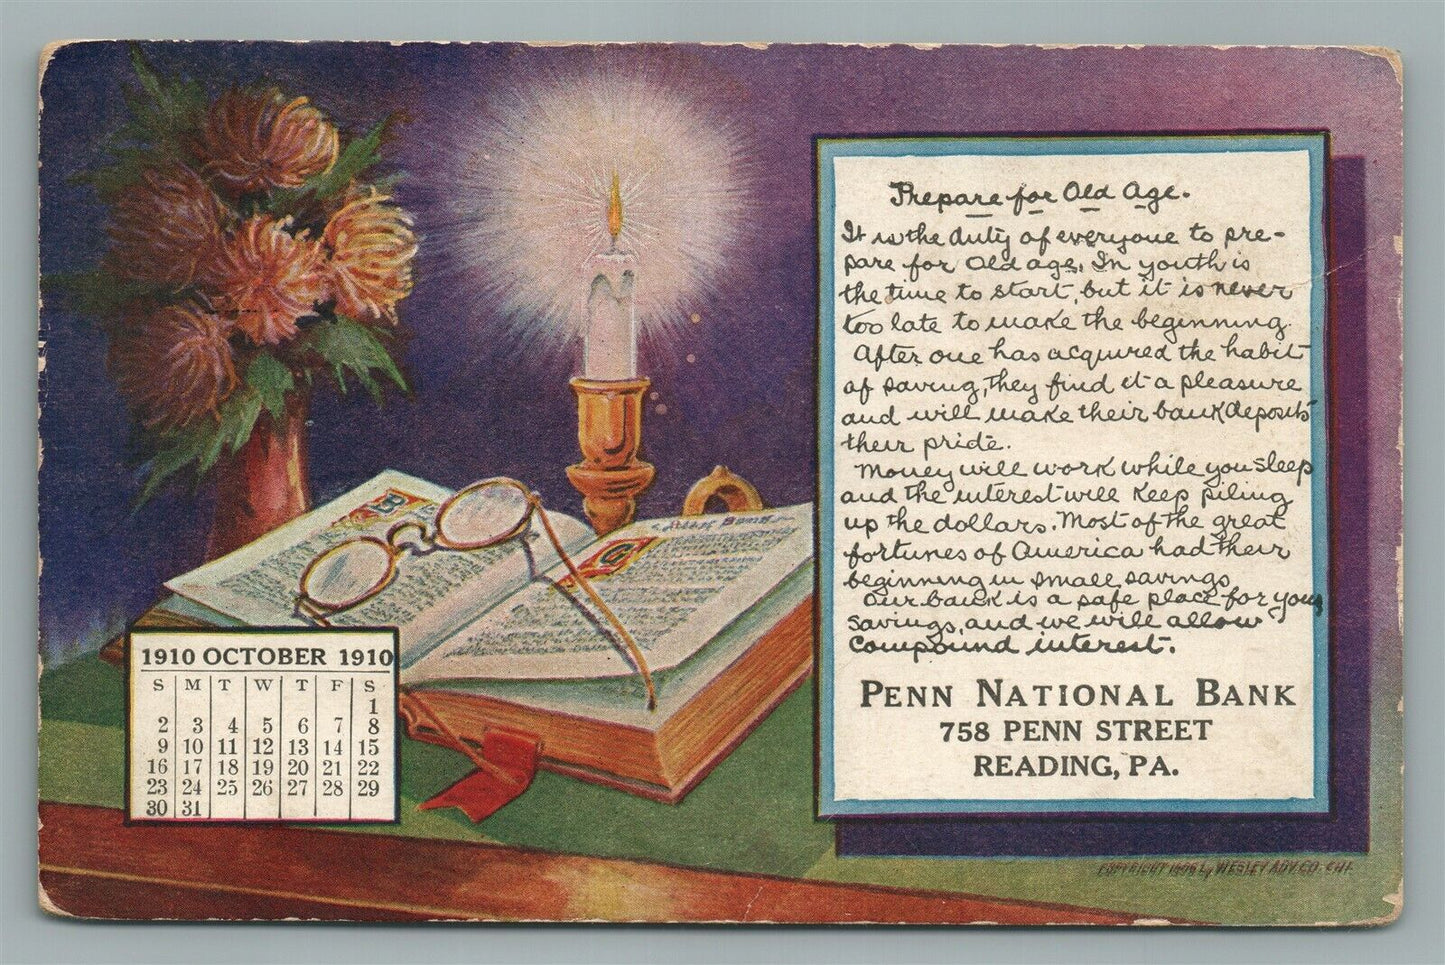 Prepare for Old Age.
It is the duty of everyone to pre-
pare for Old age. In youth is
the time to start, but it is never
too late to make the beginning.
After one has acquired the habit
of saving, they find it a pleasure
and will make their bank deposits
their pride.
Money will work while you sleep
and the interest will keep piling
up the dollars. Most of the great
fortunes of America had their
beginning in small savings
Our bank is a safe place for your
savings, and we will allow
compound interest.
PENN NATIONAL BANK
758 PENN STREET
READING, PA.
1910 OCTOBER 1910
S M T W T F S
1
2 3 4 5 6 7 8
9 10 11 12 13 14 15
16 17 18 19 20 21 22
23 24 25 26 27 28 29
30 31
COPYRIGHT 1909 by WESLEY ADV. CO. CHI.